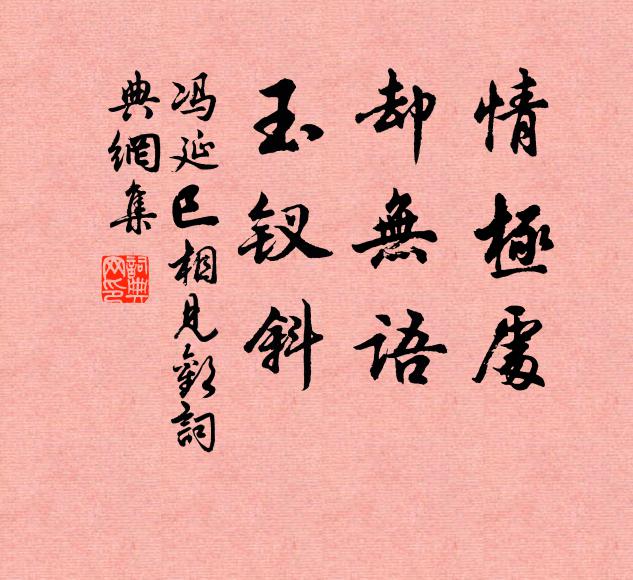 情極處
却無語
玉钗斜
冯延巳相見歡詞
典網集
詞典
网印